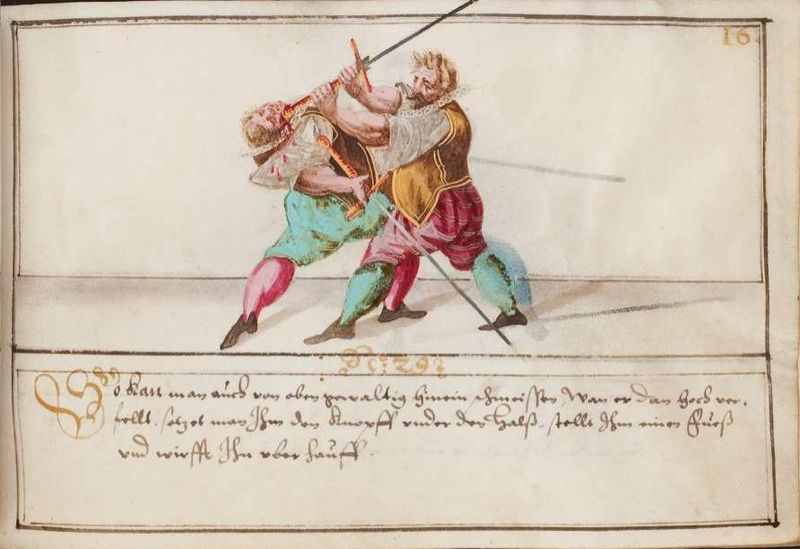 16
No: 292
So Kan man auch von oben gewaltig hinein schmeissen Wan er dan hoch ver,
stellt, setzet man Ihm den Knopff under den Halß, stellt Ihm einen Fueß
und wirfft Ihn uber hauff.